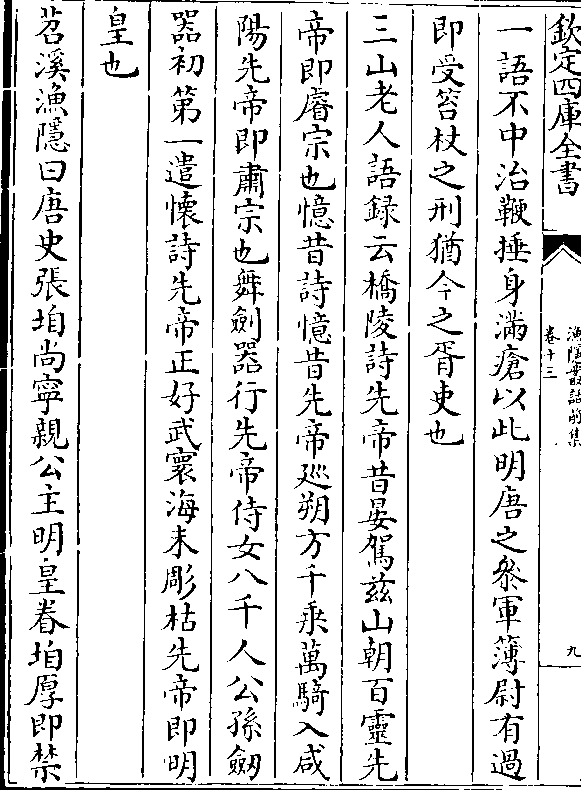 欽定四庫全書
漁隱叢話前集
卷十三
九
一語不中治鞭捶身滿瘡以此明唐之參軍簿尉有過
即受笞杖之刑猶今之胥吏也
三山老人語録云橋陵詩先帝昔晏駕兹山朝百靈先
帝即睿宗也憶昔詩憶昔先帝廵朔方千乗萬騎入咸
陽先帝即肅宗也舞劍器行先帝侍女八千人公孫劒
器初第一遣懷詩先帝正好武寰海未彫枯先帝即明
皇也
苕溪漁隱曰唐史張垍尚寧親公主明皇眷垍厚即禁